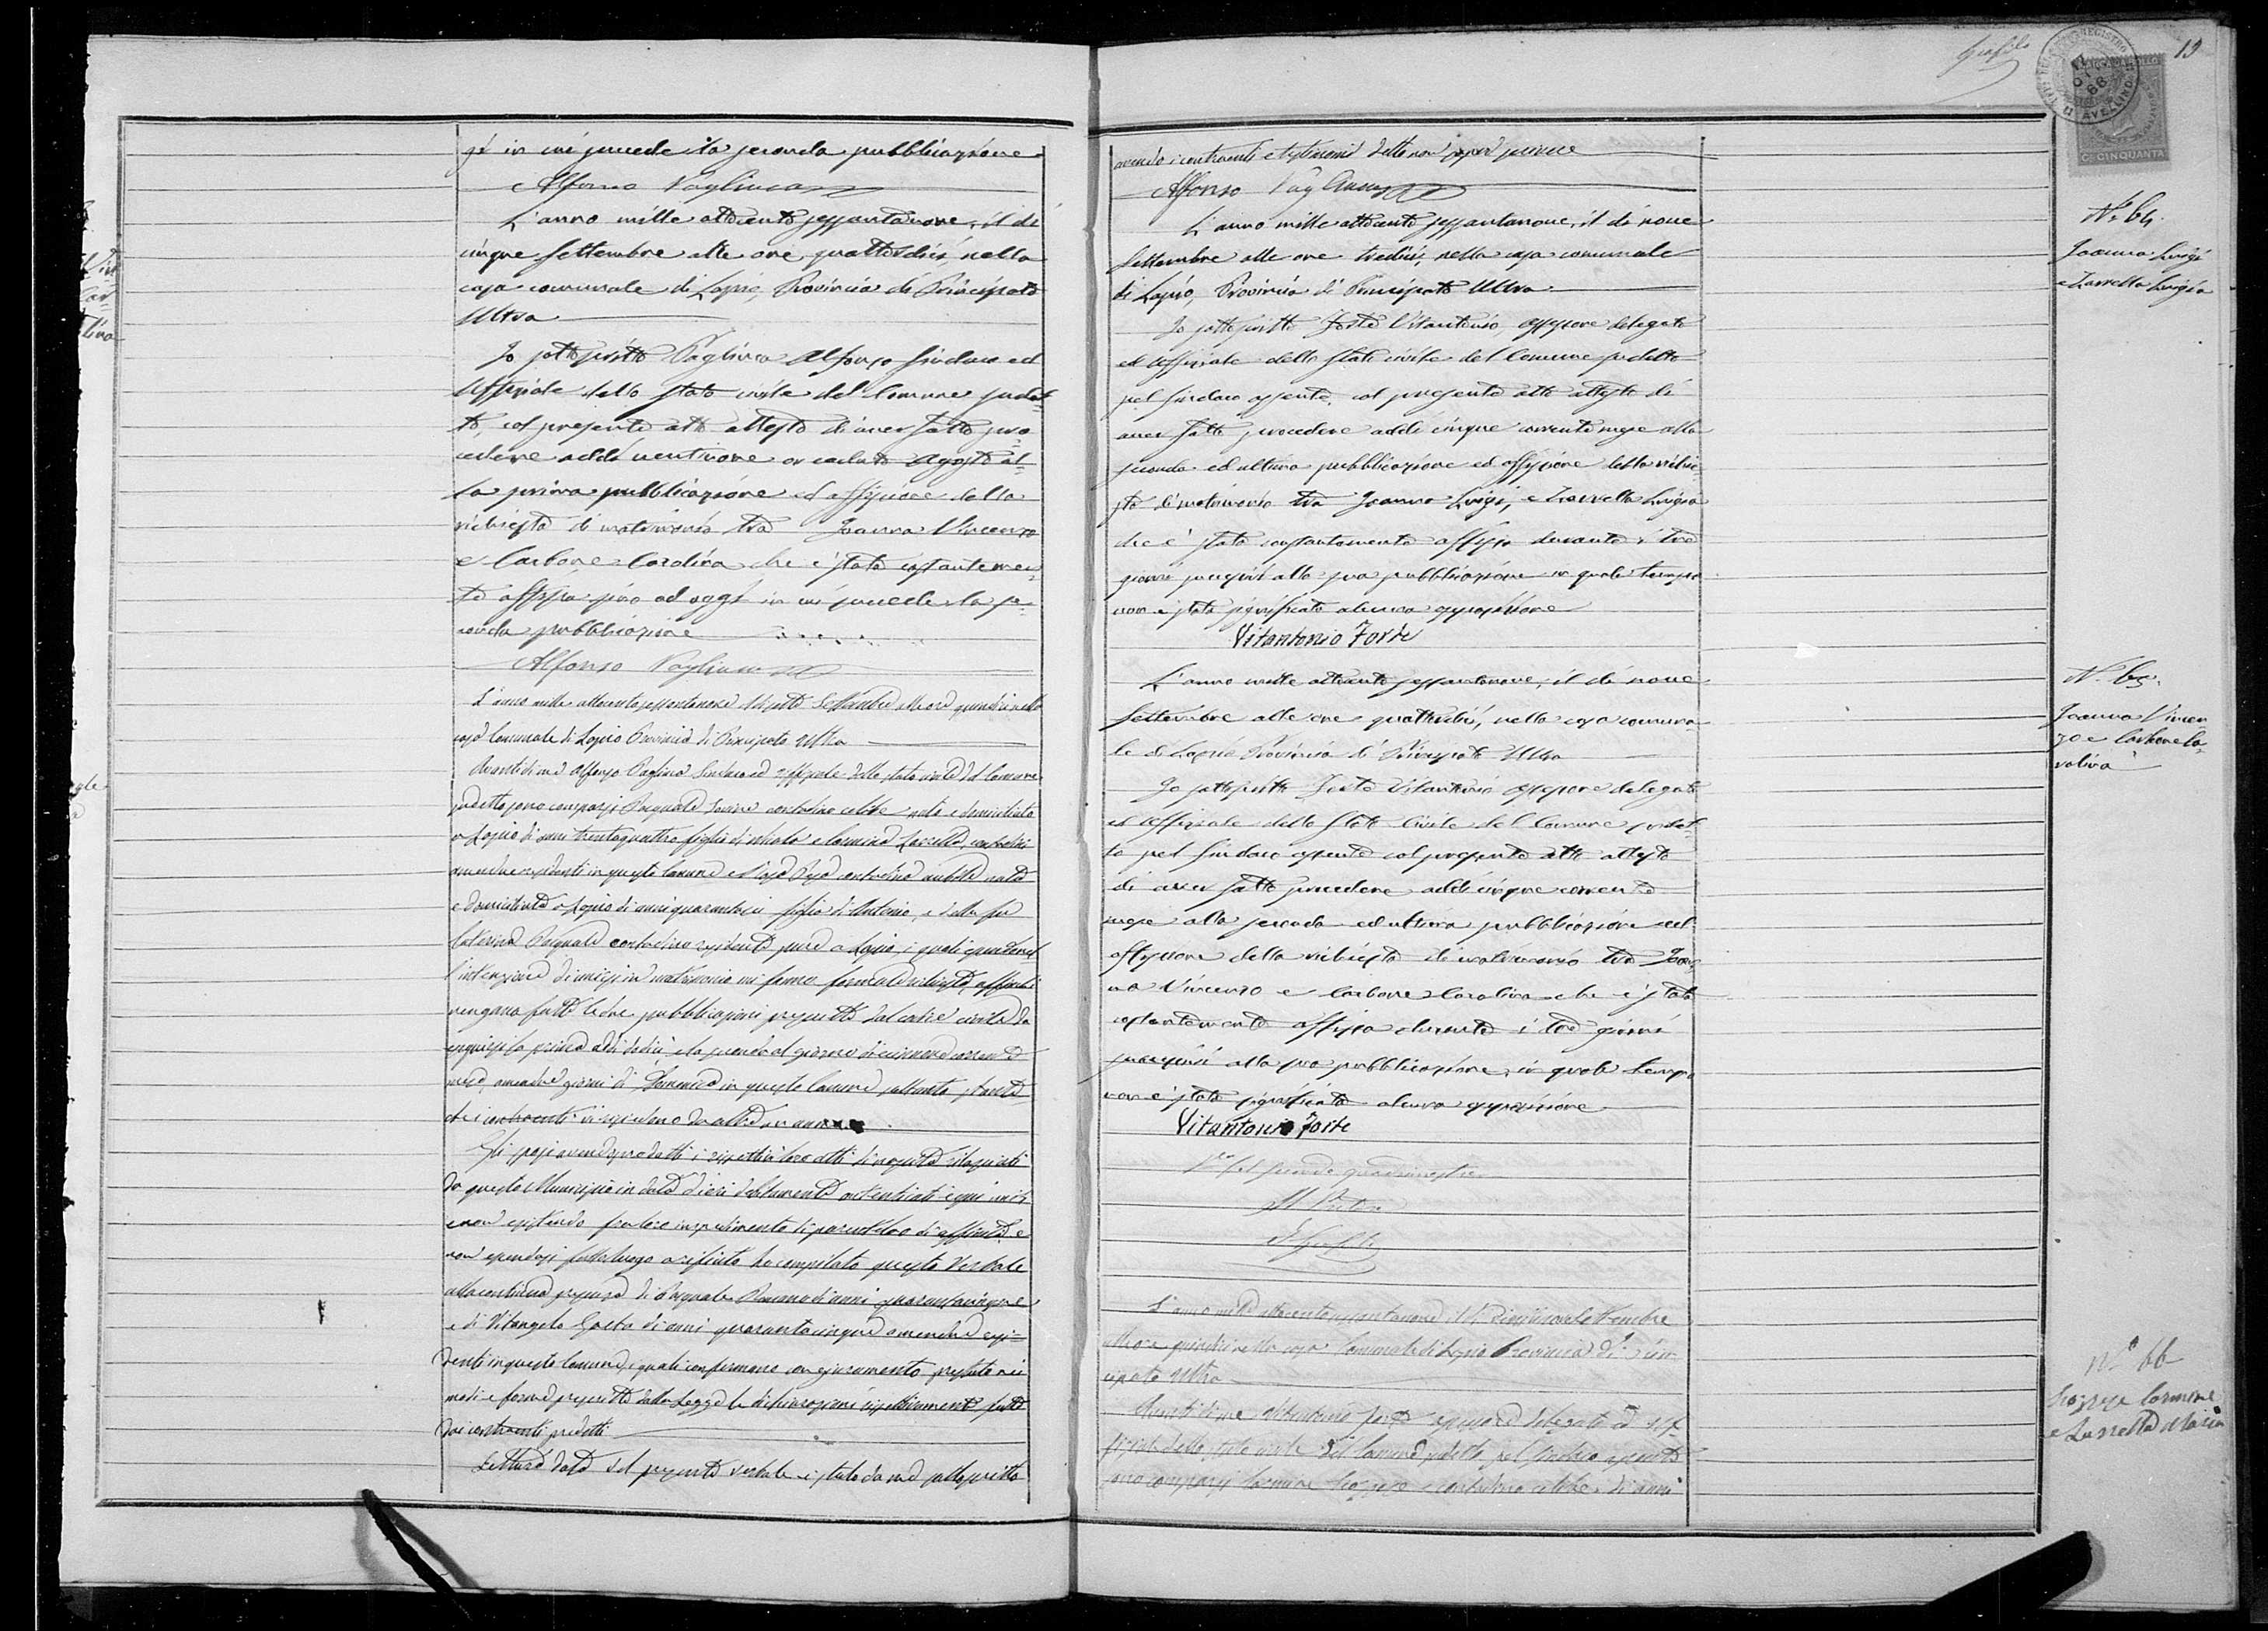 gi in cui precede la seconda pubblicazione
Alfonso Pagliuca
L'anno mille ottocento sessantanove, il dì
cinque Settembre alle ore quattordici, nella
casa comunale di Lapio, Provincia di Principato
Ultra
Io sottoscritto Pagliuca Alfonso Sindaco ed
Uffiziale dello Stato civile del Comune sudet-
to, col presente atto attesto di aver fatto pro
cedere addì ventinove or caduto Agosto al-
la prima pubblicazione ed affissione della
richiesta di matrimonio tra Joanna Vincenzo
e Carbone Carolina che è stata costantemen-
te affissa sino ad oggi in cui precede la se-
conda pubblicazione
Alfonso Pagliuca
L'anno mille ottocento sessantanove Settembre alle ore quindici nella
casa Comunale di Lapio Provincia di Principato Ultra
Avanti di me Alfonso Pagliuca Sindaco ed uffiziale dello stato civile del Comune
sudetto sono comparsi Pasquale contadino celibe nato e domiciliato
a Lapio di anni trentaquattro figlio di e Carmina Zarrella, contadini
amendue residenti in questo Comune e contadina nubile nata
e domiciliata a Lapio di anni figlia di Antonio, e della fu
Caterina Pasquale contadino residente pure a Lapio, i quali
l'intenzione di unirsi in matrimonio mi fanno formale richiesta affinchè
vengano fatte le due pubblicazioni prescritte dal codice civile da
eseguirsi la prima addì dodici e la seconda al giorno diciannove corrente
mese amendue giorni di Domenica in questo Comune soltanto
che i contraenti vi risiedono da oltre un anno
Gli sposi avendo prodotti i rispettivi loro atti di nascita rilasciati
da questo Municipio in data di ieri debitamente autenticati
e non esistendo fra loro impedimento di parentela o di affinità e
non essendosi fatto luogo a rifiuto ho compilato questo Verbale
alla continua presenza di Pasquale Romano di anni quarantacinque
e di Vitangelo Gaeta di anni quarantacinque amendue resi-
denti in questo Comune, i quali confermano con giuramento prestato nei
modi e forme prescritte dalla Legge le dichiarazioni rispettivamente fatte
dai contraenti predetti
Lettura data del presente verbale è stato da me sottoscritto
19
C. CINQUANTA
AVELLINO
avendo i contraenti e testimoni detto non saper scrivere
Alfonso Pagliuca
L'anno mille ottocento sessantanove, il dì nove
Settembre alle ore tredici, nella casa comunale
di Lapio, Provincia di Principato Ultra
Io sottoscritto Forte Vitantonio, assessore delegato
ed uffiziale dello Stato civile del Comune sudetto
pel Sindaco assente, col presente atto attesto di
aver fatto procedere addì cinque corrente mese alla
seconda ed ultima pubblicazione ed affissione della richie-
sta di matrimonio tra Joanna Luigi, e Zarrella Luigia
che è stata costantemente affissa durante i tre
giorni successivi alla sua pubblicazione in quale tempo
non è stata significata alcuna opposizione
Vitantonio Forte
L'anno mille ottocento sessantanove, il dì nove
Settembre alle ore quattordici, nella casa comuna-
le di Lapio Provincia di Principato Ultra
Io sottoscritto Forte Vitantonio assessore delegato
ed uffiziale dello Stato Civile del Comune sudet-
to pel Sindaco assente col presente atto attesto
di aver fatto procedere addì cinque corrente
mese alla seconda ed ultima pubblicazione ed
affissione della richiesta di matrimonio tra Joan-
na Vincenzo e Carbone Carolina che è stata
costantemente affissa durante i tre giorni
successivi alla sua pubblicazione, in quale tempo
non è stata significata alcuna opposizione
Vitantonio Forte
pel secondo quadrimestre
L'anno mille ottocento sessantanove il dì Settembre
alle ore quindici nella casa Comunale di Lapio Provincia di Prin-
cipato Ultra
Avanti di me Vitantonio Forte assessore delegato ed uf-
fiziale dello stato civile del Comune sudetto pel Sindaco assente
sono comparsi Carmine contadino celibe di anni
N.° 64
Joanna Luigi
e Zarrella Luigia
N. 65
Joanna Vincen
zo e Carbone Ca-
rolina
N° 66
Carmine
e Zarrella Maria